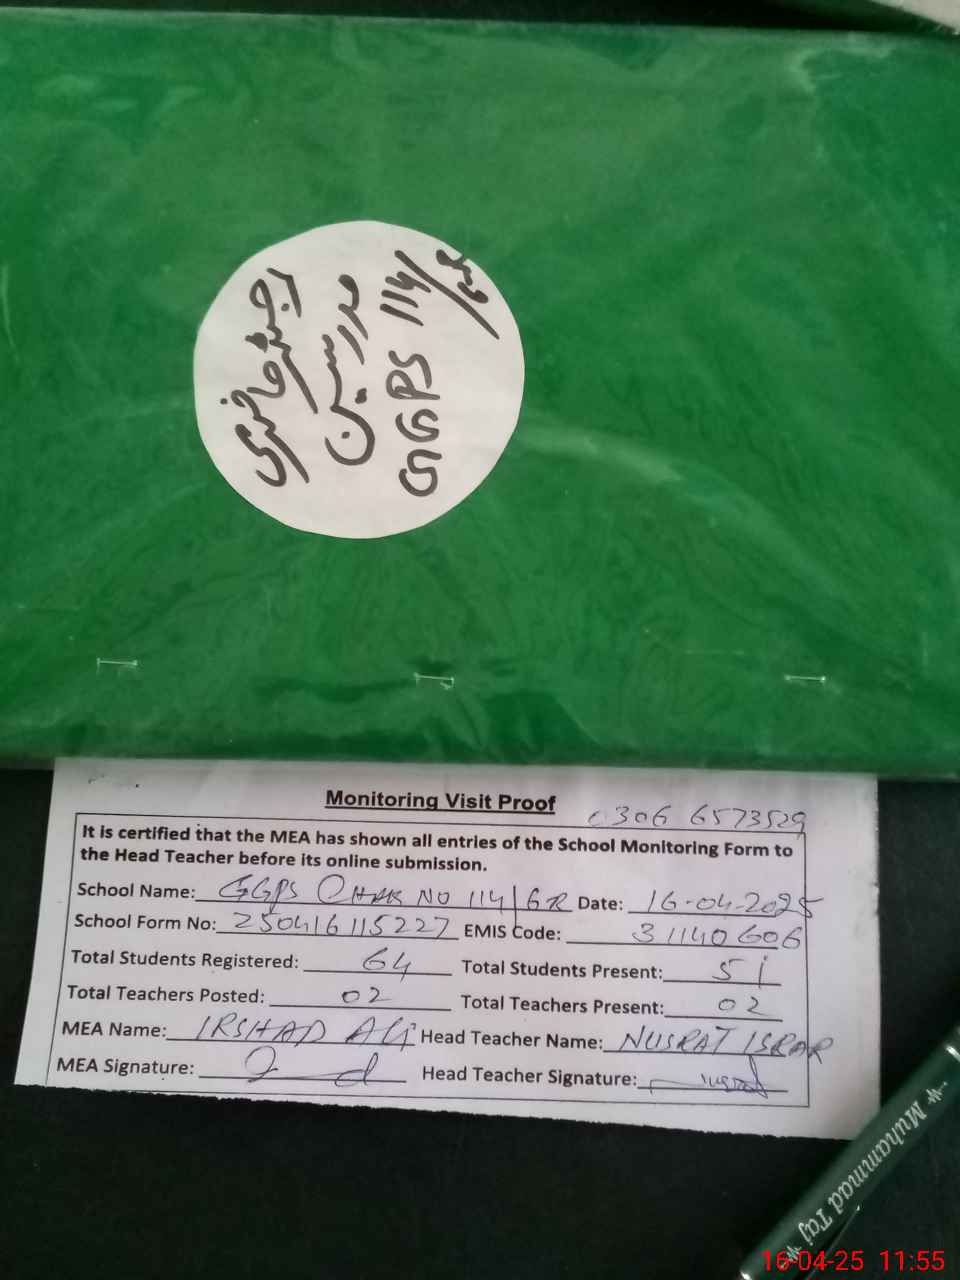 رجسٹر حاضری
مدرسین
GGPS 114/6R
Monitoring Visit Proof
0306 6573529
It is certified that the MEA has shown all entries of the School Monitoring Form to
the Head Teacher before its online submission.
School Name: GGPS CHAK NO 114/6R Date: 16-04-2025
School Form No: 250416115227 EMIS Code: 31140606
Total Students Registered: 64 Total Students Present: 51
Total Teachers Posted: 02 Total Teachers Present: 02
MEA Name: IRSHAD ALI Head Teacher Name: NUSRAT ISRAR
MEA Signature: Head Teacher Signature:
Muhammad Taj
16-04-25 11:55